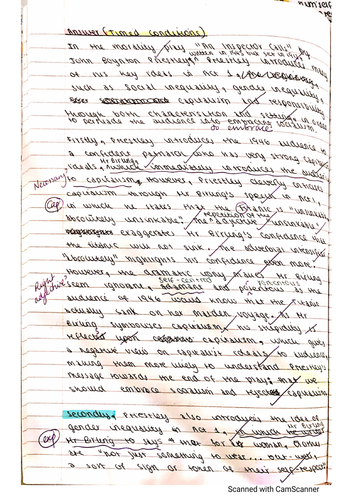 himself
Answer (Timed Conditions)
In the morality play "An Inspector Calls"
written in 1945 but set in 1912
John Boynton Priestley. Priestley introduces many
of his key ideas in Act 1,
such as social inequality, gender inequality
capitalism and responsibility
through both characterisation and setting, in order
to persuade the audience into embracing socialism.
to embrace
Firstly, Priestley introduces the 1946 audience to
a confident patriarch who has very strong capitalist
Mr Birling
Necessary?
which immediately introduces the audience
to capitalism. However, Priestley cleverly
capitalism through Mr Birling's speech in Act 1,
Cap
in which he states that the Titanic is "unsinkable
absolutely unsinkable". The
repetition of the
adjective "unsinkable"
exaggerates Mr Birling's confidence that
the titanic will not sink. The adverbial intensifier
"absolutely" highlights his confidence even more.
However, the dramatic irony makes Mr Birling
self-centred
Right adjective?
seem ignorant, and as the
audience of 1946 would know that the Titanic
actually sank on her maiden voyage. As Mr
Birling symbolises capitalism, his stupidity is
reflected upon capitalism, which gives
a negative view on capitalist ideals to audience,
making them more likely to understand Priestley's
message towards the end of the play: that we
should embrace socialism and reject capitalism
Secondly, Priestley also introduces the idea of
gender inequality in Act 1, in which he uses
Mr Birling
Mr Birling to says "a man" for women, clothes
exp
are "not just something to wear... but - well,
a sort of sign or token of their self-respect
Scanned with CamScanner